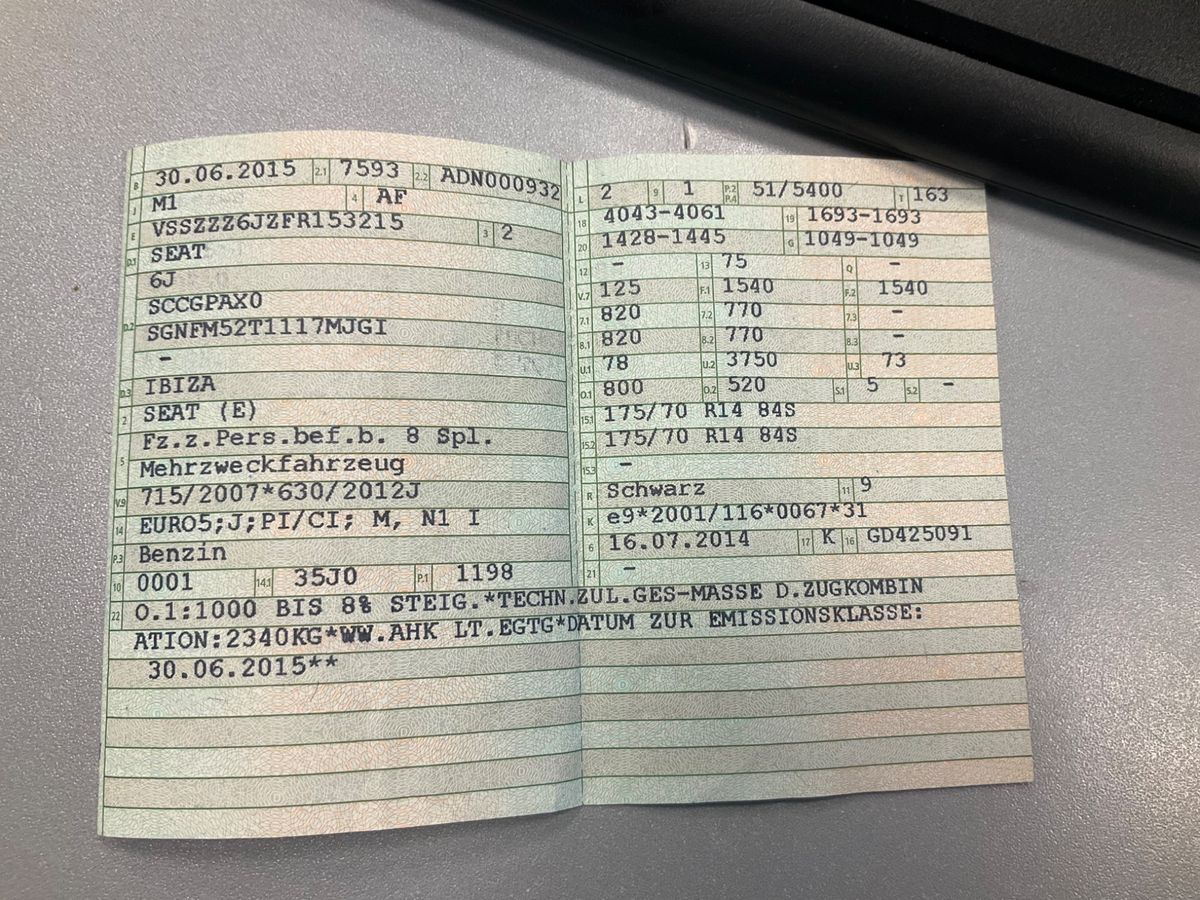 B 30.06.2015 2.1 7593 2.2 ADN000932
J M1 4 AF
E VSSZZZ6JZFR153215 3 2
D.1 SEAT
6J
D.2 SCCGPAX0
SGNFM52T1117MJGI
–
D.3 IBIZA
2 SEAT (E)
Fz.z.Pers.bef.b. 8 Spl.
5 Mehrzweckfahrzeug
V.9 715/2007*630/2012J
14 EURO5;J;PI/CI; M, N1 I
P.3 Benzin
10 0001 14.1 35J0 P.1 1198
L 2 9 1 P.2 P.4 51/5400 T 163
18 4043-4061 19 1693-1693
20 1428-1445 G 1049-1049
12 – 13 75 Q –
V.7 125 F.1 1540 F.2 1540
7.1 820 7.2 770 7.3 –
8.1 820 8.2 770 8.3 –
U.1 78 U.2 3750 U.3 73
O.1 800 O.2 520 S.1 5 S.2 –
15.1 175/70 R14 84S
15.2 175/70 R14 84S
15.3 –
R Schwarz 11 9
K e9*2001/116*0067*31
6 16.07.2014 17 K 16 GD425091
21 –
22 O.1:1000 BIS 8% STEIG.*TECHN.ZUL.GES-MASSE D.ZUGKOMBIN
ATION:2340KG*WW.AHK LT.EGTG*DATUM ZUR EMISSIONSKLASSE:
30.06.2015**